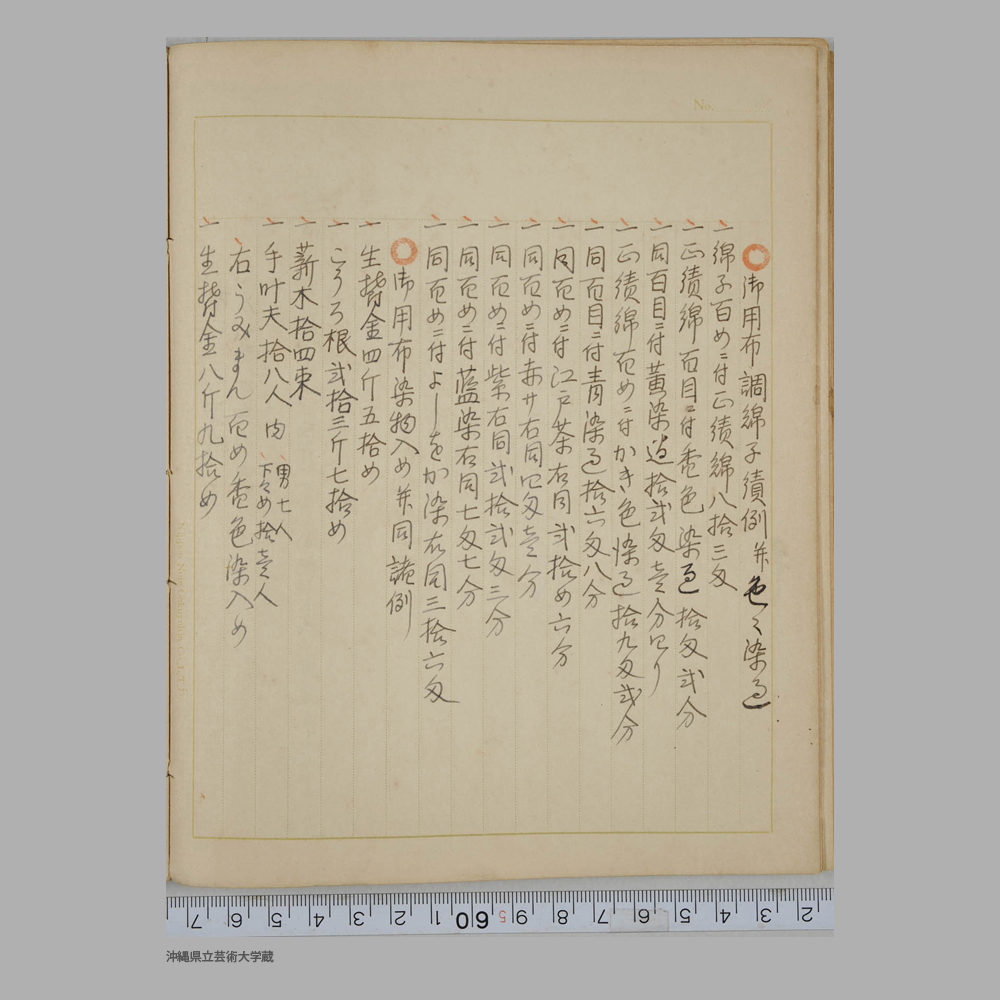 No.
御用布調綿子績例并色々染過
一 綿子百め二付正績綿八拾三匁
一 正績綿百目二付桼色染過拾匁弐分
一 同百目二付黄染過拾弐匁壱分四り
一 正績綿百め二付かき色染過拾九匁弐分
一 同百目二付青染過拾六匁八分
一 同百め二付江戸茶右同弐拾め六分
一 同百め二付赤サ右同四匁壱分
一 同百め二付紫右同弐拾弐匁三分
一 同百め二付藍染右同七匁七分
一 同百め二付よしをか染右同三拾六匁
御用布染物入め并同諸例
一 生欝金四斤五拾め
一 こうろ根弐拾三斤七拾め
一 薪木拾四束
一 手叶夫拾八人内
男七人
下々め拾壱人
右うみまん百め桼色染入め
一 生欝金八斤九拾め
7 6 5 4 3 2 1 60 5 9 8 7 6 5 4 3 2
沖縄県立芸術大学蔵